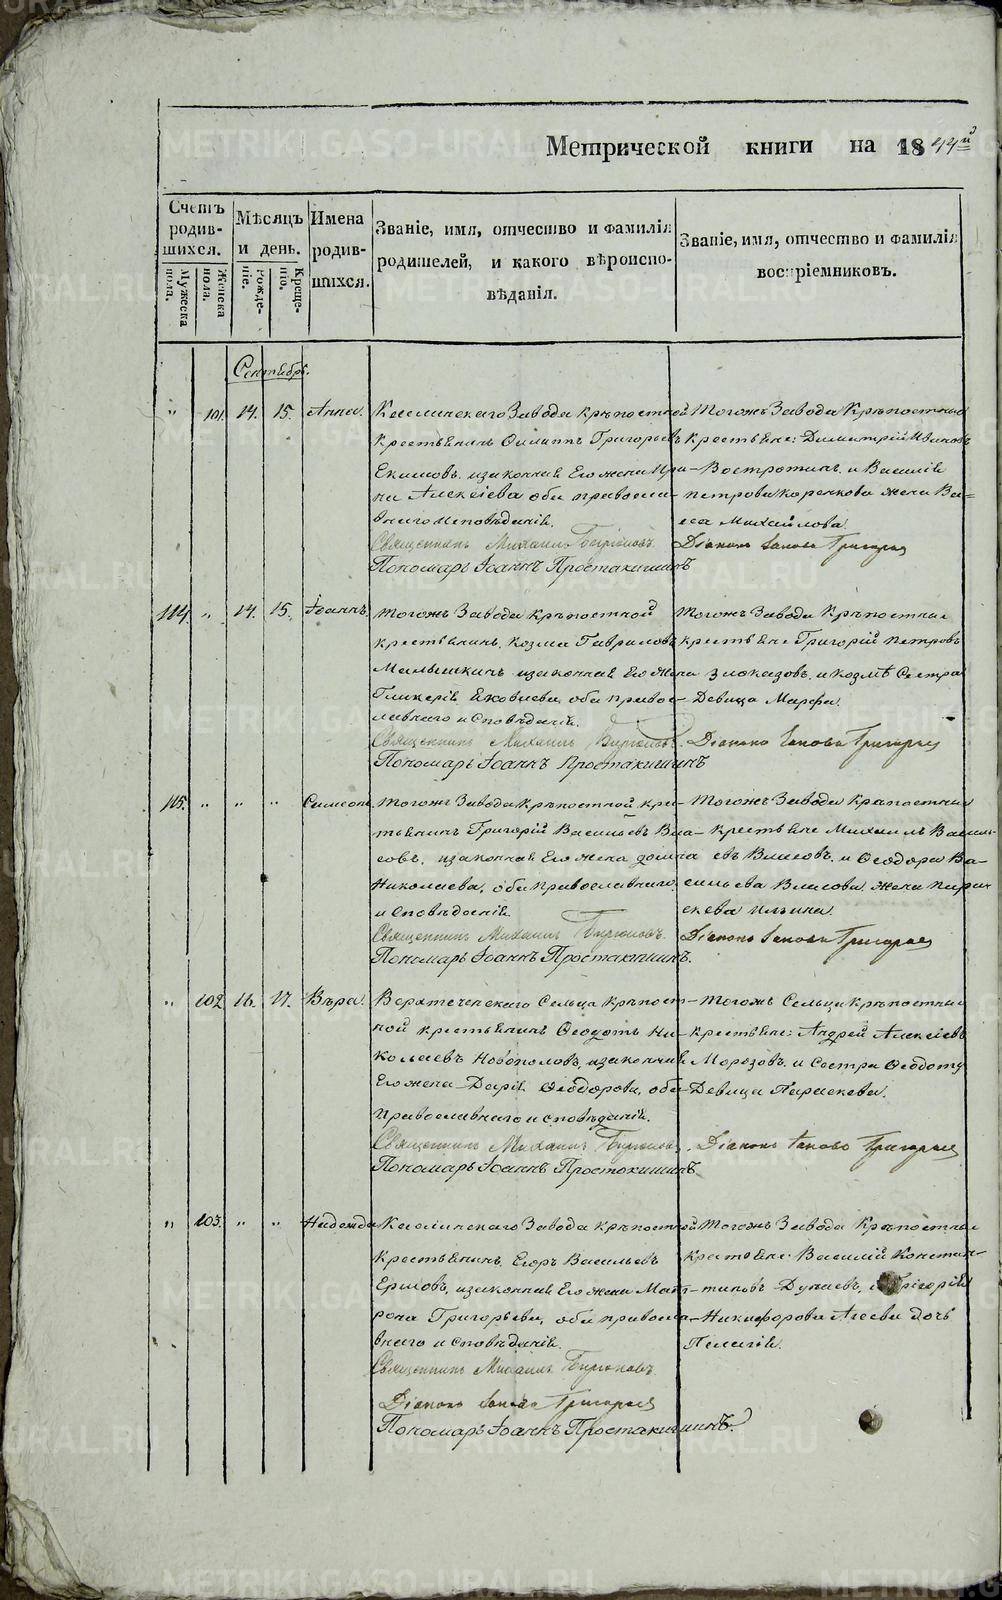 Метрической книги на 1844й
Счетъ родив-шихся.
Мужеска пола.
Женска пола.
Мѣсяцъ и день.
Рожде-ніе.
Креще-ніе.
Имена родив-шихся.
Званіе, имя, отчество и фамилія
родителей, и какого вѣроиспо-
вѣданія.
Званіе, имя, отчество и фамилія
воспріемниковъ.
Сентябрь.
" 101. 14. 15. Анна.
Каслинскаго Завода крѣпостной
крестьянинъ Филиппъ Григорьевъ
Екимовъ. изаконная Его жена Ири-
на Алексіева оба правосла-
внаго исповѣданія.
Священникъ Михаилъ Бирюковъ.
Пономарь Іоаннъ Простакишинъ
Тогожъ Завода Крѣпостныя
крестьяне: Димитрій Ивановъ
Востротинъ. и Василія
петрова Коренкова жена Ва-
са Михайлова.
Діаконъ Іаковъ Григорьев
114. " 14. 15. Іоаннъ.
тогожъ Завода крѣпостной
крестьянинъ. Козма Гавриловъ
Малышкинъ изаконная Его Жена
Гликерія Яковлева, оба право-
славнаго исповѣданія.
Священникъ Михаилъ Бирюковъ.
Пономарь Іоаннъ Простакишинъ
Тогожъ Завода Крѣпостныя
крестьяне Григорій петровъ
Злоказовъ, и козмѣ Сестра
Девица Марфа.
Діаконъ Іаковъ Григорьев
115. " " " Симеонъ.
тогожъ Завода Крѣпостной. кре-
стьянинъ Григорій Васильевъ Вла-
совъ. изаконная Его жена домна
Николаева, оба Православнаго
исповѣданія.
Священникъ Михаилъ Бирюковъ.
Пономарь Іоаннъ Простакишинъ.
Тогожъ Завода Крѣпостныя
крестьяне Михаилъ Василь-
евъ Власовъ. и Феодора Ва-
сильева Власова жена Пара-
скева Ильина.
Діаконъ Іаковъ Григорьев
" 102 16. 17. Вѣра.
Верхтеченскаго Сельца крѣпост-
ной крестьянинъ Феодотъ Ни-
колаевъ Новополовъ, изаконная
Его жена Дарія Феодорова, оба
Православнаго исповѣданія.
Священникъ Михаилъ Бирюковъ.
Пономарь Іоаннъ Простокишинъ
Тогожъ Сельца Крѣпостныя
крестьяне: Андрей Алексіевъ
Морозовъ. и Сестра Феодоту
Девица Параскева.
Діаконъ Іаковъ Григорьев
" 103. " " Надежда
Каслинскаго Завода крѣпостной
крестьянинъ, Егоръ Васильевъ
Ершовъ, изаконная Его жена Мат-
рона Григорьева, оба правосла-
внаго исповѣданія.
Священникъ Михаилъ Бирюковъ.
Діаконъ Іаковъ Григорьев
Пономарь Іоаннъ Простакишинъ.
Тогожъ Завода Крѣпостныя
крестьяне Василій Констан-
тиновъ Дунаевъ, и Григорія
Никифорова Агеева дочь
Пелагія.
METRIKI.GASO-URAL.RU